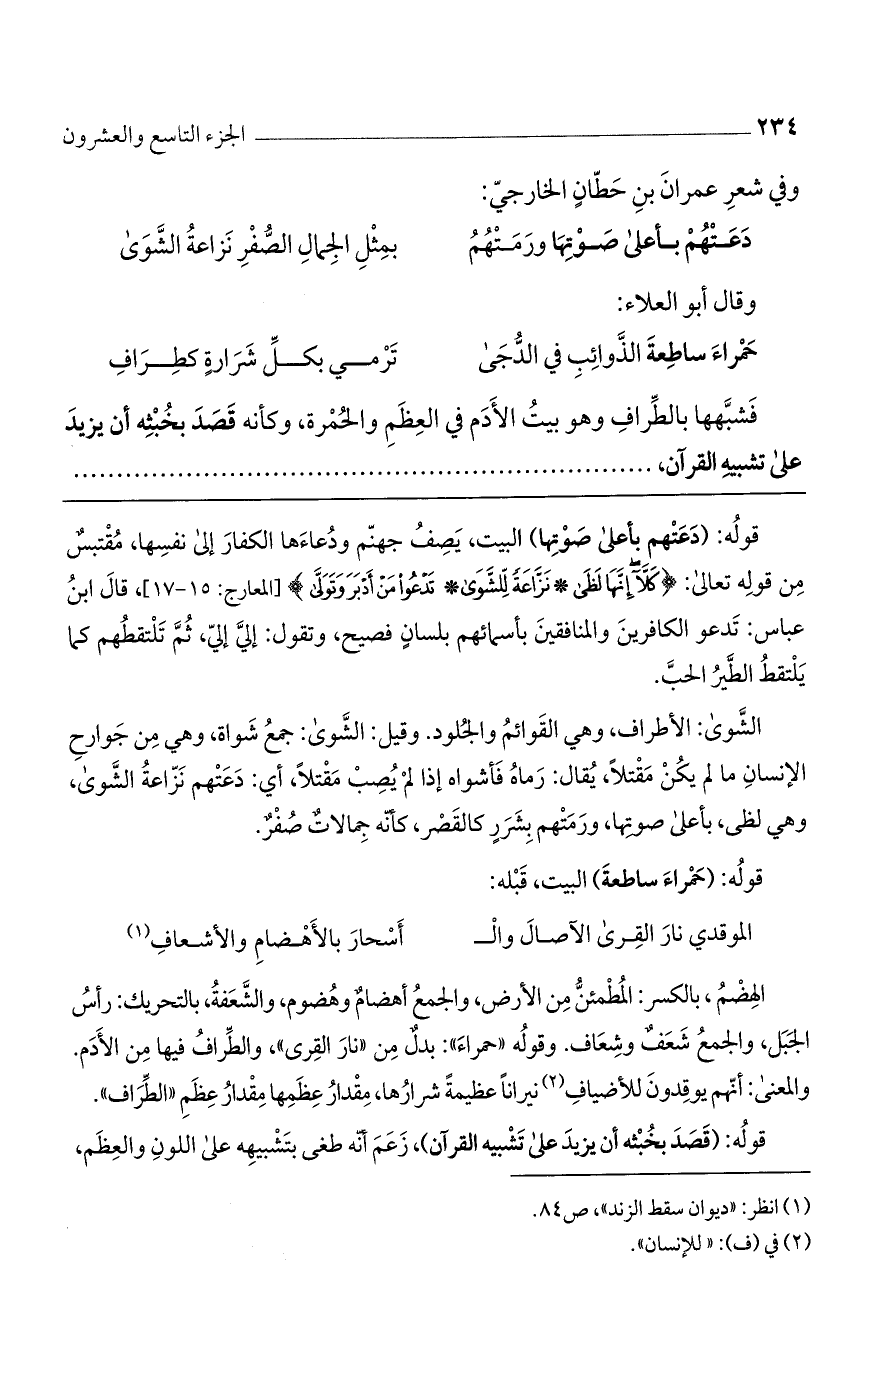 ٢٣٤ ــــــ الجزء التاسع والعشرون
وفي شعرِ عمرانَ بنِ حَطّانٍ الخارجيّ:
دَعَـتْهُمْ بـأعلىٰ صَـوْتِها ورَمَـتْهُمُ بمِثْلِ الجِمالِ الصُّفْرِ نَزاعةُ الشَّوَىٰ
وقال أبو العلاء:
حَمْراءَ ساطِعةَ الذَّوائِبِ في الدُّجَىٰ تَرْمــي بكــلِّ شَرَارةٍ كطِــرَافِ
فَشبَّهها بالطِّرافِ وهو بيتُ الأدَم في العِظَمِ والحُمْرة، وكأنه قَصَدَ بخُبْثِه أن يزيدَ
علىٰ تشبيهِ القرآن، ....................................................................
قولُه: (دَعَتْهم بأعلىٰ صَوْتِها) البيت، يَصِفُ جهنّم ودُعاءَها الكفارَ إلىٰ نفسِها، مُقْتبسٌ
مِن قولِه تعالىٰ: ﴿كَلَّآ إِنَّهَا لَظَىٰ * نَزَّاعَةً لِّلشَّوَىٰ * تَدْعُواْ مَنْ أَدْبَرَ وَتَوَلَّىٰ﴾ [المعارج: ١٥-١٧]، قالَ ابنُ
عباس: تَدعو الكافرينَ والمنافقينَ بأسمائهم بلسانٍ فصيح، وتقول: إليَّ إليّ، ثُمَّ تَلْتقطُهم كما
يَلْتقطُ الطَّيرُ الحبَّ.
الشَّوىٰ: الأطراف، وهي القَوائمُ والجُلود. وقيل: الشَّوىٰ: جمعُ شَواة، وهي مِن جَوارحِ
الإنسانِ ما لم يكُنْ مَقْتلاً، يُقال: رَماهُ فَأشواه إذا لمْ يُصِبْ مَقْتلاً، أي: دَعَتْهم نَزّاعةُ الشَّوىٰ،
وهي لظى، بأعلىٰ صوتِها، ورَمَتْهم بِشَرَرٍ كالقَصْر، كأنّه جِمالاتٌ صُفْرٌ.
قولُه: (حَمْراءَ ساطعةَ) البيت، قَبْله:
الموقدي نارَ القِـرىٰ الآصـالَ والْـ ـأَسْحارَ بالأَهْـضامِ والأشـعافِ(١)
الهِضْمُ، بالكسر: المُطْمئنُّ مِن الأرض، والجمعُ أهضامٌ وهُضوم، والشَّعَفةُ، بالتحريك: رأسُ
الجَبَل، والجمعُ شَعَفٌ وشِعَاف. وقولُه «حمراءَ»: بدلٌ مِن «نارَ القِرى»، والطِّرافُ فيها مِن الأدَم.
والمعنىٰ: أنّهم يوقِدونَ للأضيافِ(٢) نيراناً عظيمةً شرارُها، مِقْدارُ عِظَمِها مِقْدارُ عِظَمِ «الطِّرَاف».
قولُه: (قَصَدَ بخُبْثِه أن يزيدَ علىٰ تَشْبيه القرآن)، زَعَمَ أنّه طغى بتَشْبيهِه علىٰ اللونِ والعِظَم،
(١) انظر: «ديوان سقط الزند»، ص٨٤.
(٢) في (ف): «للإنسان».